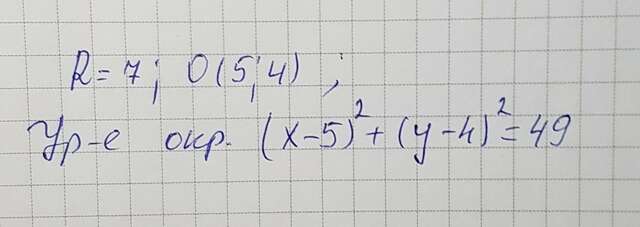 R = 7; O(5;4);
Ур-е окр. (x-5)²+(y-4)²=49